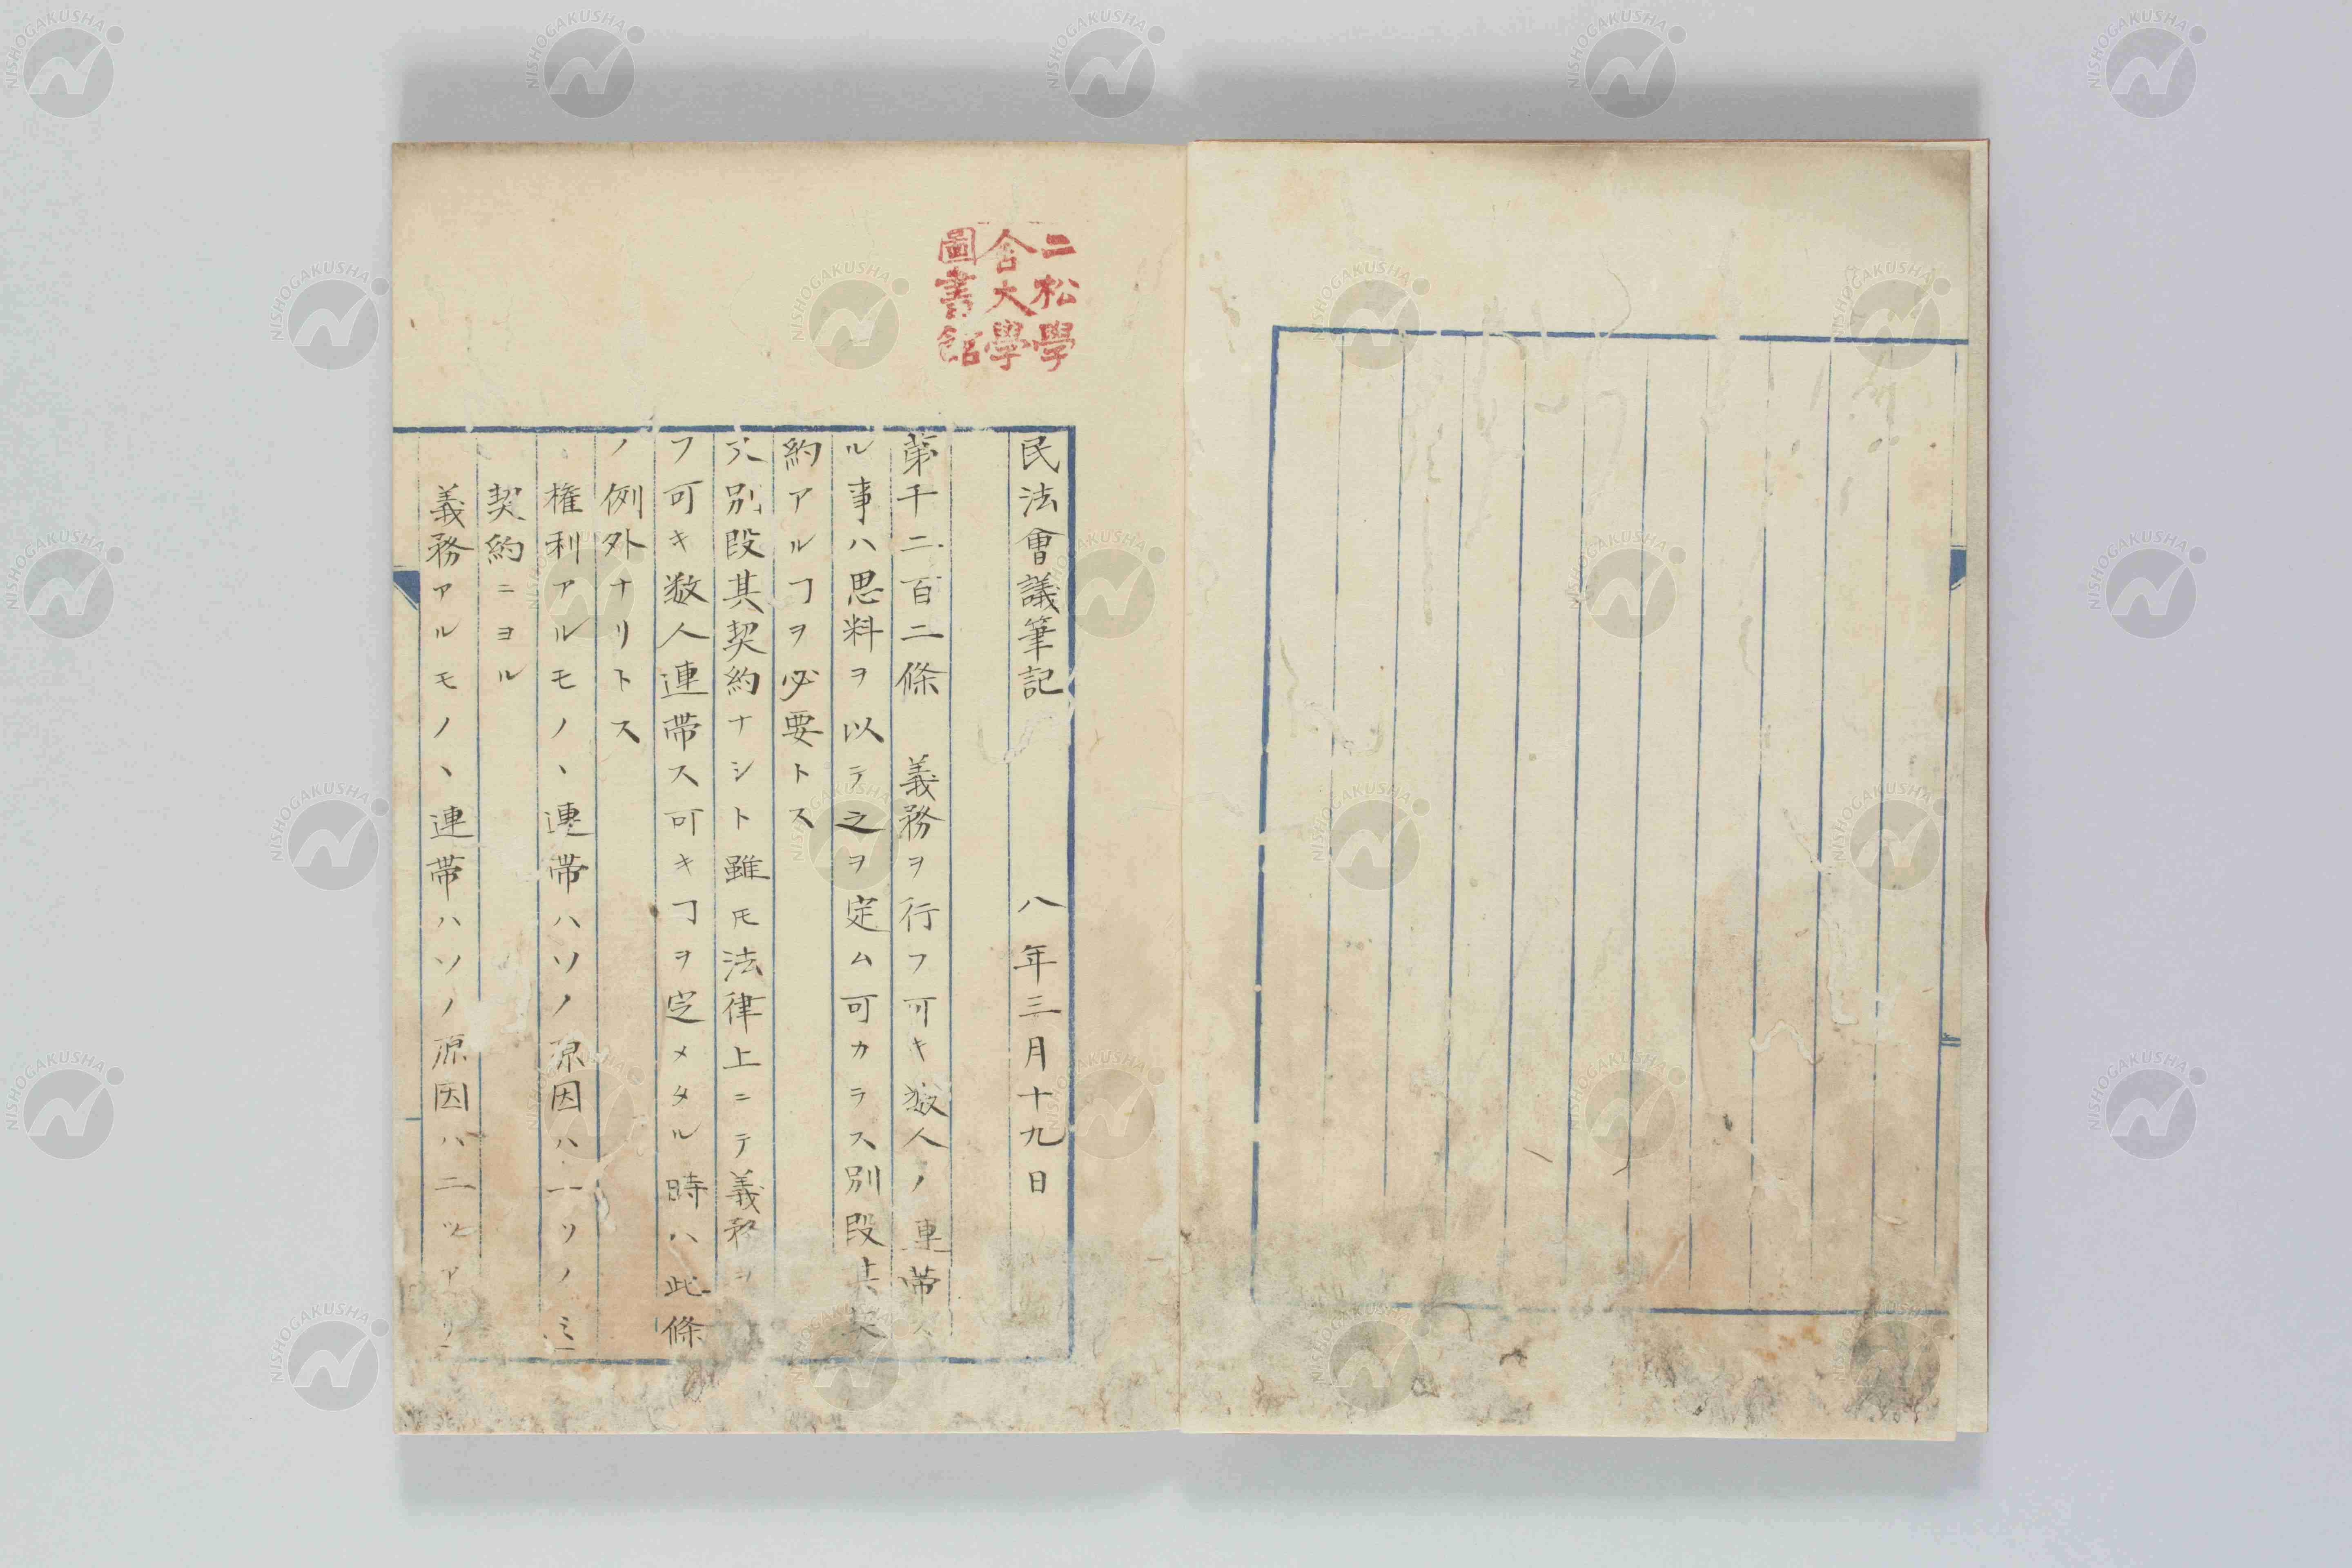 二松學
舍大學
圖書館
民法會議筆記 八年三月十九日
第千二百二條 義務ヲ行フ可キ数人ノ連帶ス
ル事ハ思料ヲ以テ之ヲ定ム可カラス別段其契
約アルヿヲ必要トス
別段其契約ナシト雖モ法律上ニテ義務ヲ
フ可キ数人連帶ス可キヿヲ定メタル時ハ此條
ノ例外ナリトス
権利アルモノヽ連帶ハソノ源因ハ一ツノミ
契約ニヨル
義務アルモノヽ連帶ハソノ源因ハ二ツアリ
NISHOGAKUSHA